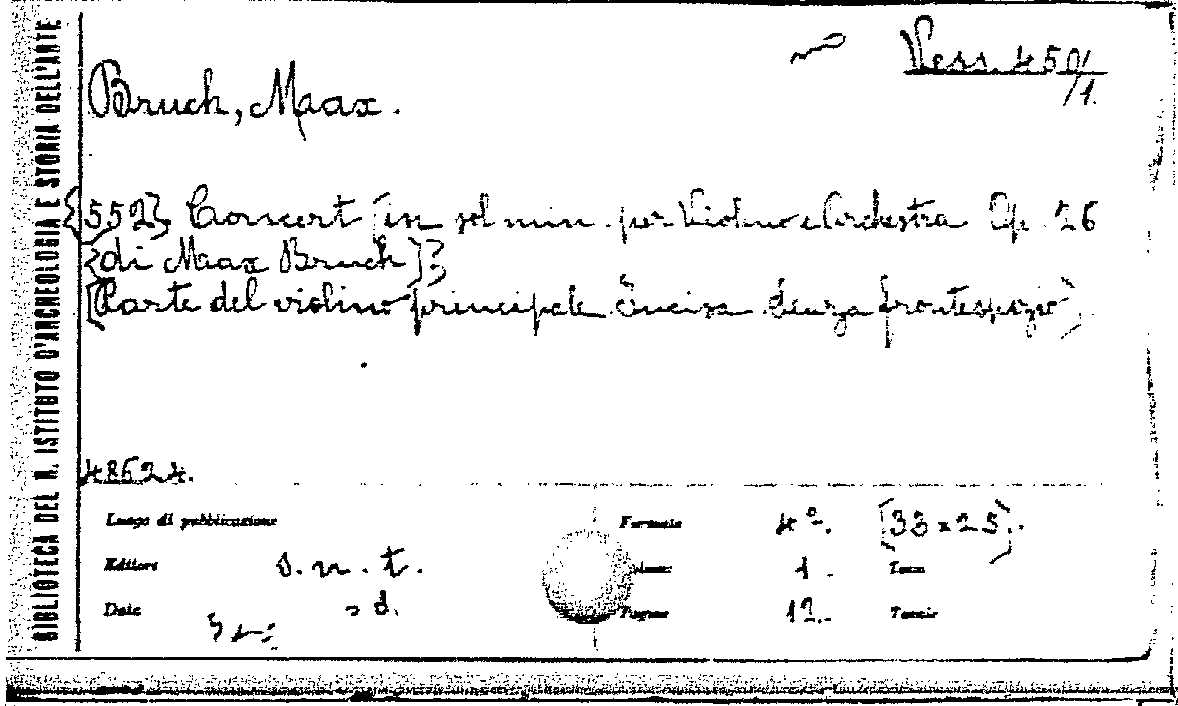 BIBLIOTECA DEL R. ISTITUTO D'ARCHEOLOGIA E STORIA DELL'ARTE
Vess. 450/1.
Bruch, Maax.
{552} Concert [in sol min. per Violino e Orchestra Op. 26
{di Maax Bruch]}
[Parte del violino principale incisa senza frontespizio]
48624.
Luogo di pubblicazione
Formato 4º. [33 x 25].
Editore s. n. t.
Volume 1. Tomo
Date s d.
Pagine 12. Tavole